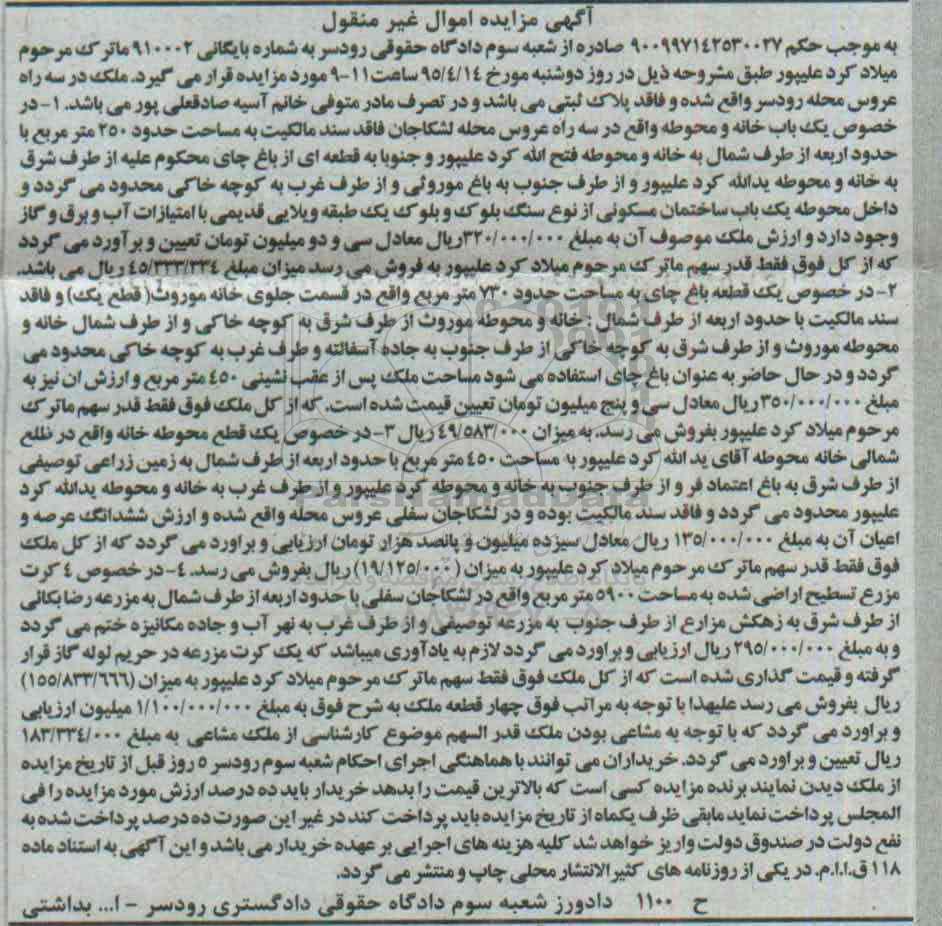 آگهی مزایده اموال غیر منقول
به موجب حکم ۹۰۰۹۹۷۱۴۲۵۳۰۰۲۷ صادره از شعبه سوم دادگاه حقوقی رودسر به شماره بایگانی ۹۱۰۰۰۲ ماترک مرحوم
میلاد کرد علیپور طبق مشروحه ذیل در روز دوشنبه مورخ ۹۵/۴/۱۴ ساعت ۱۱-۹ مورد مزایده قرار می گیرد. ملک در سه راه
عروس محله رودسر واقع شده و فاقد پلاک ثبتی می باشد و در تصرف مادر متوفی خانم آسیه صادقعلی پور می باشد. ۱- در
خصوص یک باب خانه و محوطه واقع در سه راه عروس محله لشکاجان فاقد سند مالکیت به مساحت حدود ۲۵۰ متر مربع با
حدود اربعه از طرف شمال به خانه و محوطه فتح الله کرد علیپور و جنوبا به قطعه ای از باغ چای محکوم علیه از طرف شرق
به خانه و محوطه یدالله کرد علیپور و از طرف جنوب به باغ موروثی و از طرف غرب به کوچه خاکی محدود می گردد و
داخل محوطه یک باب ساختمان مسکونی از نوع سنگ بلوک و بلوک یک طبقه ویلایی قدیمی با امتیازات آب و برق و گاز
وجود دارد و ارزش ملک موصوف آن به مبلغ ۳۲۰/۰۰۰/۰۰۰ریال معادل سی و دو میلیون تومان تعیین و برآورد می گردد
که از کل فوق فقط قدر سهم ماترک مرحوم میلاد کرد علیپور به فروش می رسد میزان مبلغ ۴۵/۳۳۳/۳۳۴ ریال می باشد.
۲- در خصوص یک قطعه باغ چای به مساحت حدود ۷۳۰ متر مربع واقع در قسمت جلوی خانه موروث( قطع یک) و فاقد
سند مالکیت با حدود اربعه از طرف شمال : خانه و محوطه موروث از طرف شرق به کوچه خاکی و از طرف شمال خانه و
محوطه موروث و از طرف شرق به کوچه خاکی از طرف جنوب به جاده آسفالته و طرف غرب به کوچه خاکی محدود می
گردد و در حال حاضر به عنوان باغ چای استفاده می شود مساحت ملک پس از عقب نشینی ۴۵۰ متر مربع و ارزش ان نیز به
مبلغ ۳۵۰/۰۰۰/۰۰۰ریال معادل سی و پنج میلیون تومان تعیین قیمت شده است. که از کل ملک فوق فقط قدر سهم ماترک
مرحوم میلاد کرد علیپور بفروش می رسد. به میزان ۴۹/۵۸۳/۰۰۰ ریال ۳- در خصوص یک قطع محوطه خانه واقع در نلع
شمالی خانه محوطه آقای ید الله کرد علیپور به مساحت ۴۵۰ متر مربع با حدود اربعه از طرف شمال به زمین زراعی توصیفی
از طرف شرق به باغ اعتماد فر و از طرف جنوب به خانه و محوطه کرد علیپور و از طرف غرب به خانه و محوطه یدالله کرد
علیپور محدود می گردد و فاقد سند مالکیت بوده و در لشکاجان سفلی عروس محله واقع شده و ارزش ششدانگ عرصه و
اعیان آن به مبلغ ۱۳۵/۰۰۰/۰۰۰ ریال معادل سیزده میلیون و پانصد هزار تومان ارزیابی و براورد می گردد که از کل ملک
فوق فقط قدر سهم ماترک مرحوم میلاد کرد علیپور به میزان (۱۹/۱۲۵/۰۰۰) ریال بفروش می رسد. ۴- در خصوص ۴ کرت
مزرع تسطیح اراضی شده به مساحت ۵۹۰۰ متر مربع واقع در لشکاجان سفلی با حدود اربعه از طرف شمال به مزرعه رضا بکائی
از طرف شرق به زهکش مزارع از طرف جنوب به مزرعه توصیفی و از طرف غرب به نهر آب و جاده مکانیزه ختم می گردد
و به مبلغ ۲۹۵/۰۰۰/۰۰۰ ریال ارزیابی و براورد می گردد لازم به یادآوری میباشد که یک کرت مزرعه در حریم لوله گاز قرار
گرفته و قیمت گذاری شده است که از کل ملک فوق فقط سهم ماترک مرحوم میلاد کرد علیپور به میزان (۱۵۵/۸۳۳/۶۶۶)
ریال بفروش می رسد علیهذا با توجه به مراتب فوق چهار قطعه ملک به شرح فوق به مبلغ ۱/۱۰۰/۰۰۰/۰۰۰ میلیون ارزیابی
و براورد می گردد که با توجه به مشاعی بودن ملک قدر السهم موضوع کارشناسی از ملک مشاعی به مبلغ ۱۸۳/۳۳۴/۰۰۰
ریال تعیین و براورد می گردد. خریداران می توانند با هماهنگی اجرای احکام شعبه سوم رودسر ۵ روز قبل از تاریخ مزایده
از ملک دیدن نمایند برنده مزایده کسی است که بالاترین قیمت را بدهد خریدار باید ده درصد ارزش مورد مزایده را فی
المجلس پرداخت نماید مابقی ظرف یکماه از تاریخ مزایده باید پرداخت کند در غیر این صورت ده درصد پرداخت شده به
نفع دولت در صندوق دولت واریز خواهد شد کلیه هزینه های اجرایی بر عهده خریدار می باشد و این آگهی به استناد ماده
۱۱۸ ق.ا.ا.م. در یکی از روزنامه های کثیرالانتشار محلی چاپ و منتشر می گردد.
ح ۱۱۰۰ دادورز شعبه سوم دادگاه حقوقی دادگستری رودسر - ا... بداشتی
ParsNamadData